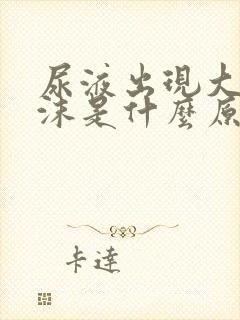 尿液出現大
沫是什麼原
卡達